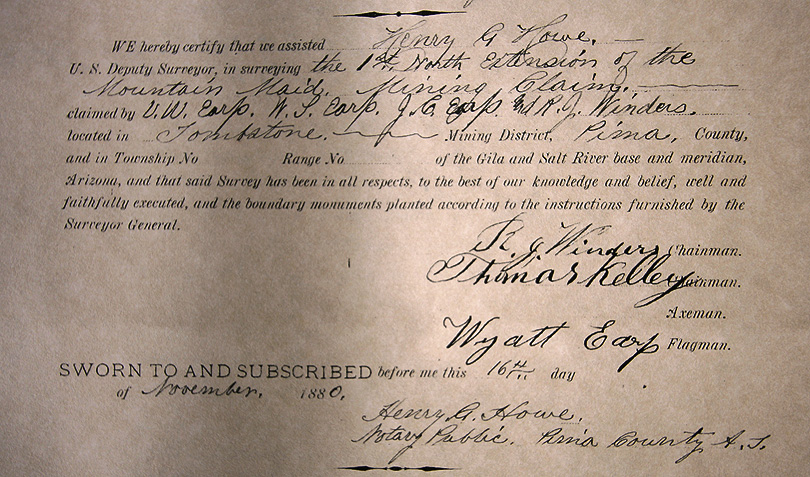 WE hereby certify that we assisted Henry G Howe.
U. S. Deputy Surveyor, in surveying the 1st. North Extension of the
Mountain Maid. Mining Claim.
claimed by V. W. Earp. W. S. Earp. J. C. Earp. and R. J. Winders.
located in Tombstone. Mining District, Pima, County,
and in Township No Range No of the Gila and Salt River base and meridian,
Arizona, and that said Survey has been in all respects, to the best of our knowledge and belief, well and
faithfully executed, and the boundary monuments planted according to the instructions furnished by the
Surveyor General.
R. J. Winders Chainman.
Thomas Kelley Chainman.
Axeman.
Wyatt Earp Flagman.
SWORN TO AND SUBSCRIBED before me this 16th day
of November, 1880.
Henry G. Howe.
Notary Public. Pima County A. T.